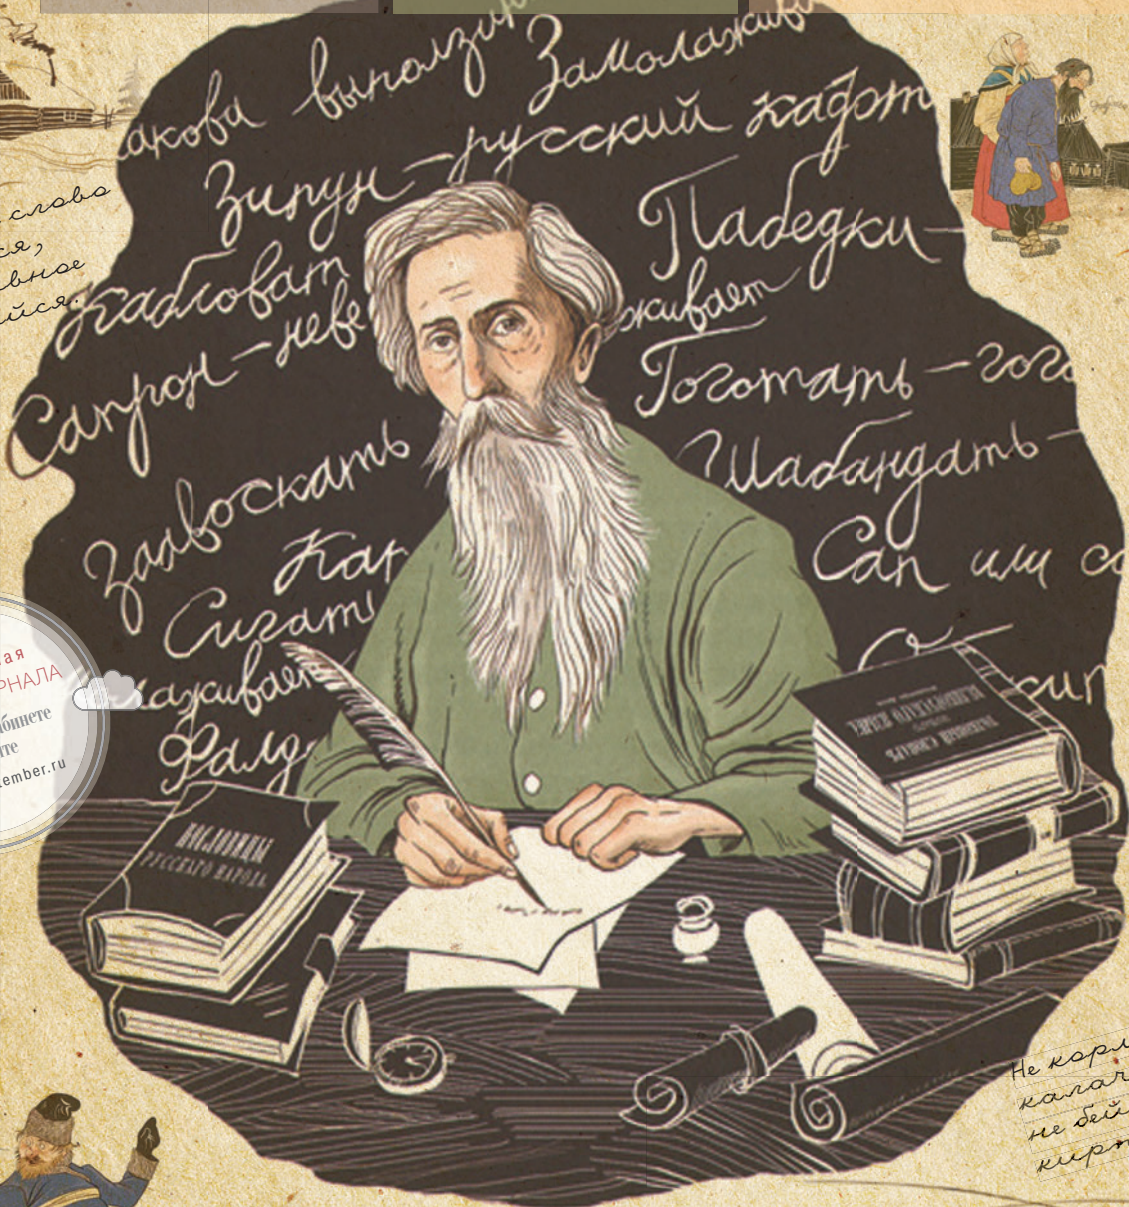 выползи
Замолаживи
акова
Зипун - русский кафт
Жабловат
Пабедки -
Сапрон - неве
живает
Гоготать - гого
Заавоскать
Шабандать -
Кап
Сап или со
Сигать
лаживает
Фалд
слова
ся,
вное
йся.
ная
РНАЛА
бинете
те
ember.ru
ПОСЛОВИЦЫ
РУССКАГО НАРОДА
ТОЛКОВЫЙ СЛОВАРЬ
ВЕЛИКОРУССКАГО ЯЗЫКА
Не корм
калач
не бей
кирп